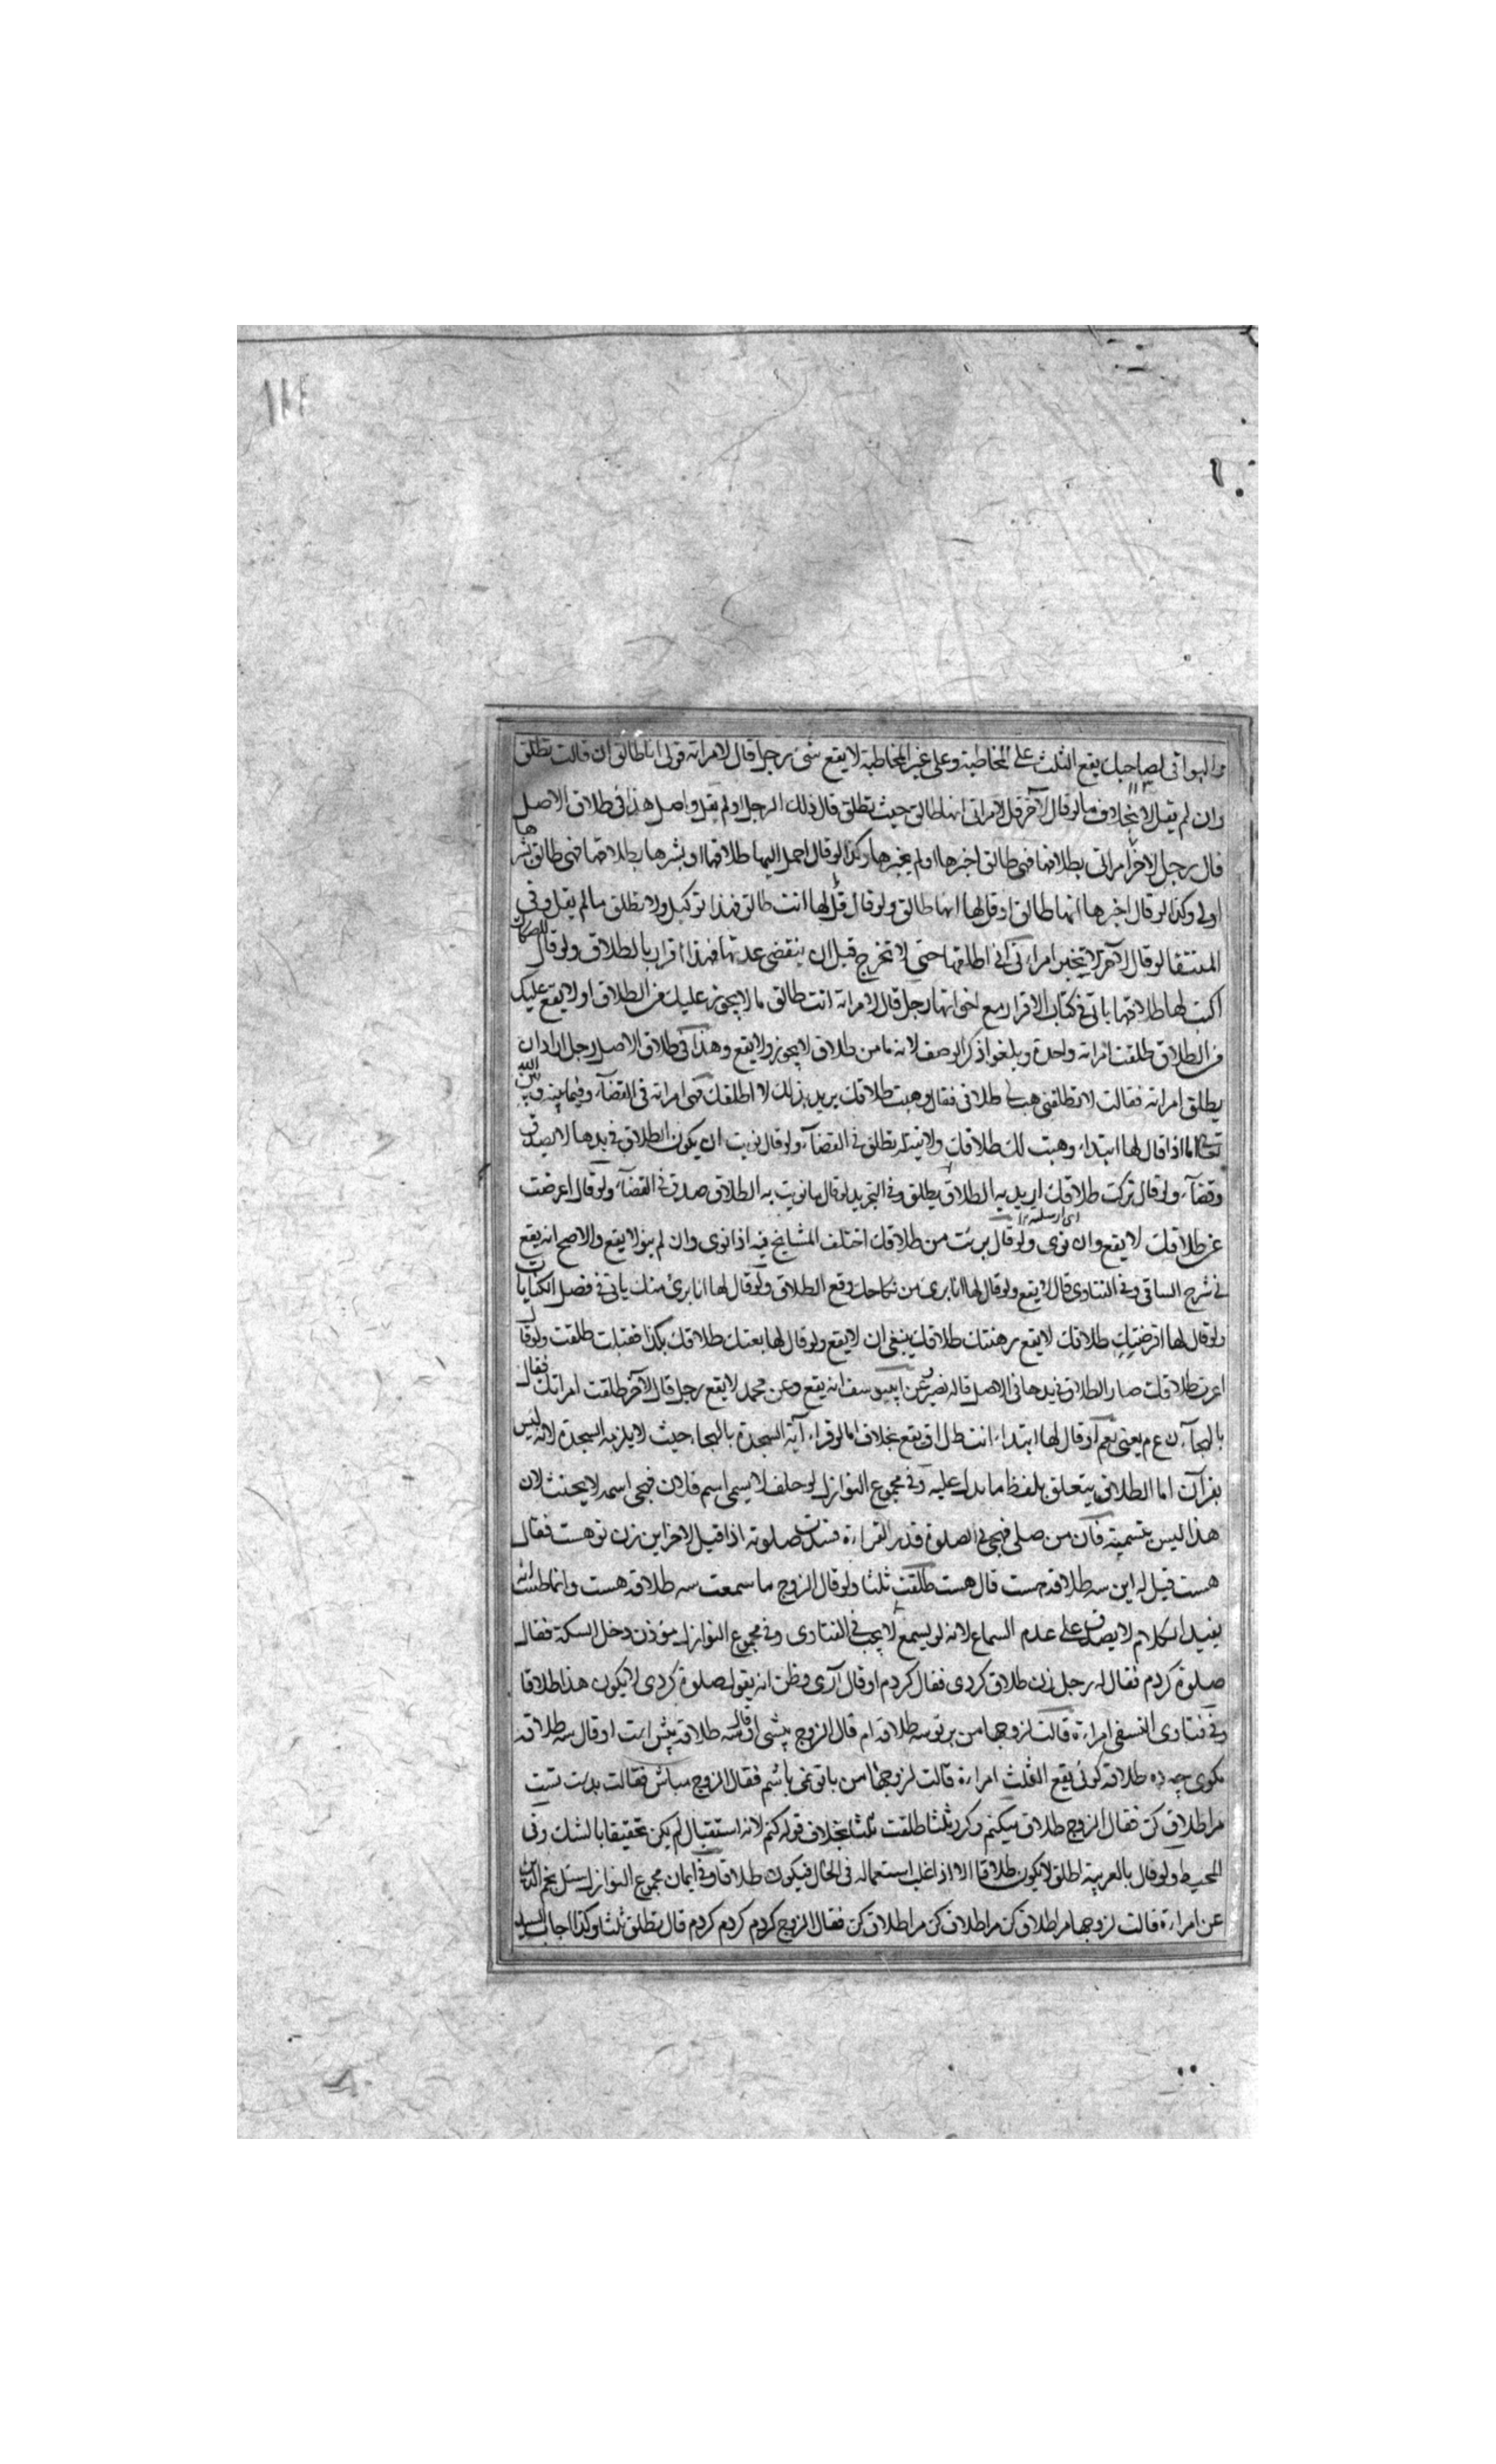 والبواقى لصاحبك يقع الثلث على المخاطبة وعلى غير المخاطبة لا يقع شئ رجل قال لامراته قولى انا طالق ان قالت تطلق
وان لم يقل لا بخلاف ما لو قال لآخر قل لامراتى انها طالق حيث تطلق قال ذلك الرجل او لم يقل واصل هذا فى طلاق الاصل
قال رجل لاخر امراتى بطلاقها فهى طالق اخبرها او لم يخبرها وكذا لو قال احمل اليها طلاقها او بشرها بطلاقها فهى طالق بشرها
اولى وكذا لو قال اخبرها انها طالق او قل لها انها طالق ولو قال قل لها انت طالق فهذا توكيل ولا تطلق ما لم يقل وفى
المنتقا لو قال لآخر لا تخبر امراتى انى اطلقها حتى لا تخرج قبل ان ينقضى عدتها فهذا اقرار بالطلاق ولو قال
اكتب لها طلاقها ياتى فى كتاب الاقرار مع اخواتها رجل قال لامراته انت طالق ما لا يجوز عليك من الطلاق او لا يقع عليك
من الطلاق طلقت امراته واحدة ويلغوا ذكر الوصف لانه ما من طلاق لا يجوز ولا يقع وهذا فى طلاق الاصل رجل اراد ان
يطلق امراته فقالت لا تطلقنى هب لى طلاقى فقال وهبت طلاقك يريد بذلك لا اطلقك فهى امراته فى القضآء وفيما بينه وبين الله
تعالى اما اذا قال لها ابتداء وهبت لك طلاقك ولا نية له تطلق فى القضآء ولو قال نويت ان يكون الطلاق فى يدها لا يصدق
وقضآء ولو قال تركت طلاقك اريد به الطلاق يطلق وفى التجريد لو قال ما نويت به الطلاق صدق فى القضآء ولو قال اعرضت
عن طلاقك لا يقع وان نوى ولو قال برئت من طلاقك اختلف المشايخ فيه اذا نوى وان لم ينو لا يقع والاصح انه يقع
فى شرح الساقى وفى الفتاوى قال لا يقع ولو قال لها انا برى من نكاحك وقع الطلاق ولو قال لها انا برئ منك ياتى فى فصل الكنايات
ولو قال لها اقرضتك طلاقك لا يقع رهنتك طلاقك ينبغى ان لا يقع ولو قال لها بعتك طلاقك بكذا فقبلت طلقت ولو قال
اعرتك طلاقك صار الطلاق فى يدها فى الاصل قاله نصير عن ابى يوسف انه يقع وعن محمد لا يقع رجل قال لآخر طلقت امراتك فقال
بالهجآء ن ع م يعنى نعم او قال لها ابتداء انت ط ال ق يقع بخلاف ما لو قراء آية السجدة بالهجاء حيث لا يلزمه السجدة لانه ليس
بقرآن اما الطلاق يتعلق بلفظ ما يدل عليه وفى مجموع النوازل لو حلف لا يسمى اسم فلان فهجى اسمه لا يحنث لان
هذا ليس بتسمية فان من صلى فهجى فى الصلوة قدر القراءة فسدت صلوته اذا قيل لاخر اين زن تو هست فقال
هست قيل له اين سه طلاقه هست قال هست طلقت ثلثا ولو قال الزوج ما سمعت سه طلاقه هست
يفيد الكلام لا يصدق على عدم السماع لانه لو يسمع لا يجب فى الفتاوى وفى مجموع النوازل مؤذن دخل السكة فقال
صلوة كردم فقال له رجل زن طلاق كردى فقال كردم او قال آرى وظن انه يقول صلوة كردى لا يكون هذا طلاقا
وفى فتاوى النسفى امراءة قالت لزوجها من بر تو سه طلاقه ام قال الزوج بيشى او قال سه طلاقه بيش است او قال سه طلاقه
مكوى چه ده طلاقه كوئى يقع الثلث امراءة قالت لزوجها من با تو نمى باشم فقال الزوج مباش فقالت بدست تست
مرا طلاق كن فقال الزوج طلاق ميكنم وكرر ثلثا طلقت ثلثا بخلاف قوله كنم لانه استقبال لم يكن تحقيقا بالشك وفى
المحيط ولو قال بالعربية اطلق لا يكون طلاقا الا اذا غلب استعماله فى الحال فيكون طلاقا وفى ايمان مجموع النوازل سئل نجم الدين
عن امراءة قالت لزوجها مرا طلاق كن مرا طلاق كن مرا طلاق كن فقال الزوج كردم كردم كردم قال تطلق ثلثا وكذا اجاب السيد